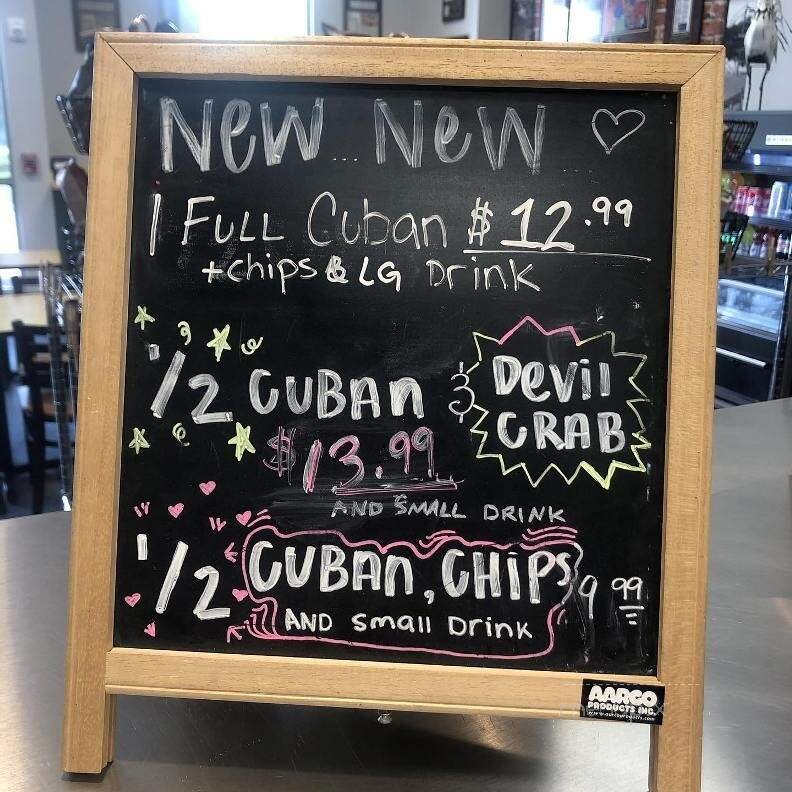 New New
1 FULL Cuban $12.99
+chips & LG Drink
1/2 CUBAN & DeViL CRAB
$13.99
AND SMALL DRINK
1/2 CUBAN, CHiPS 9 99
AND Small Drink
AARCO
PRODUCTS INC.